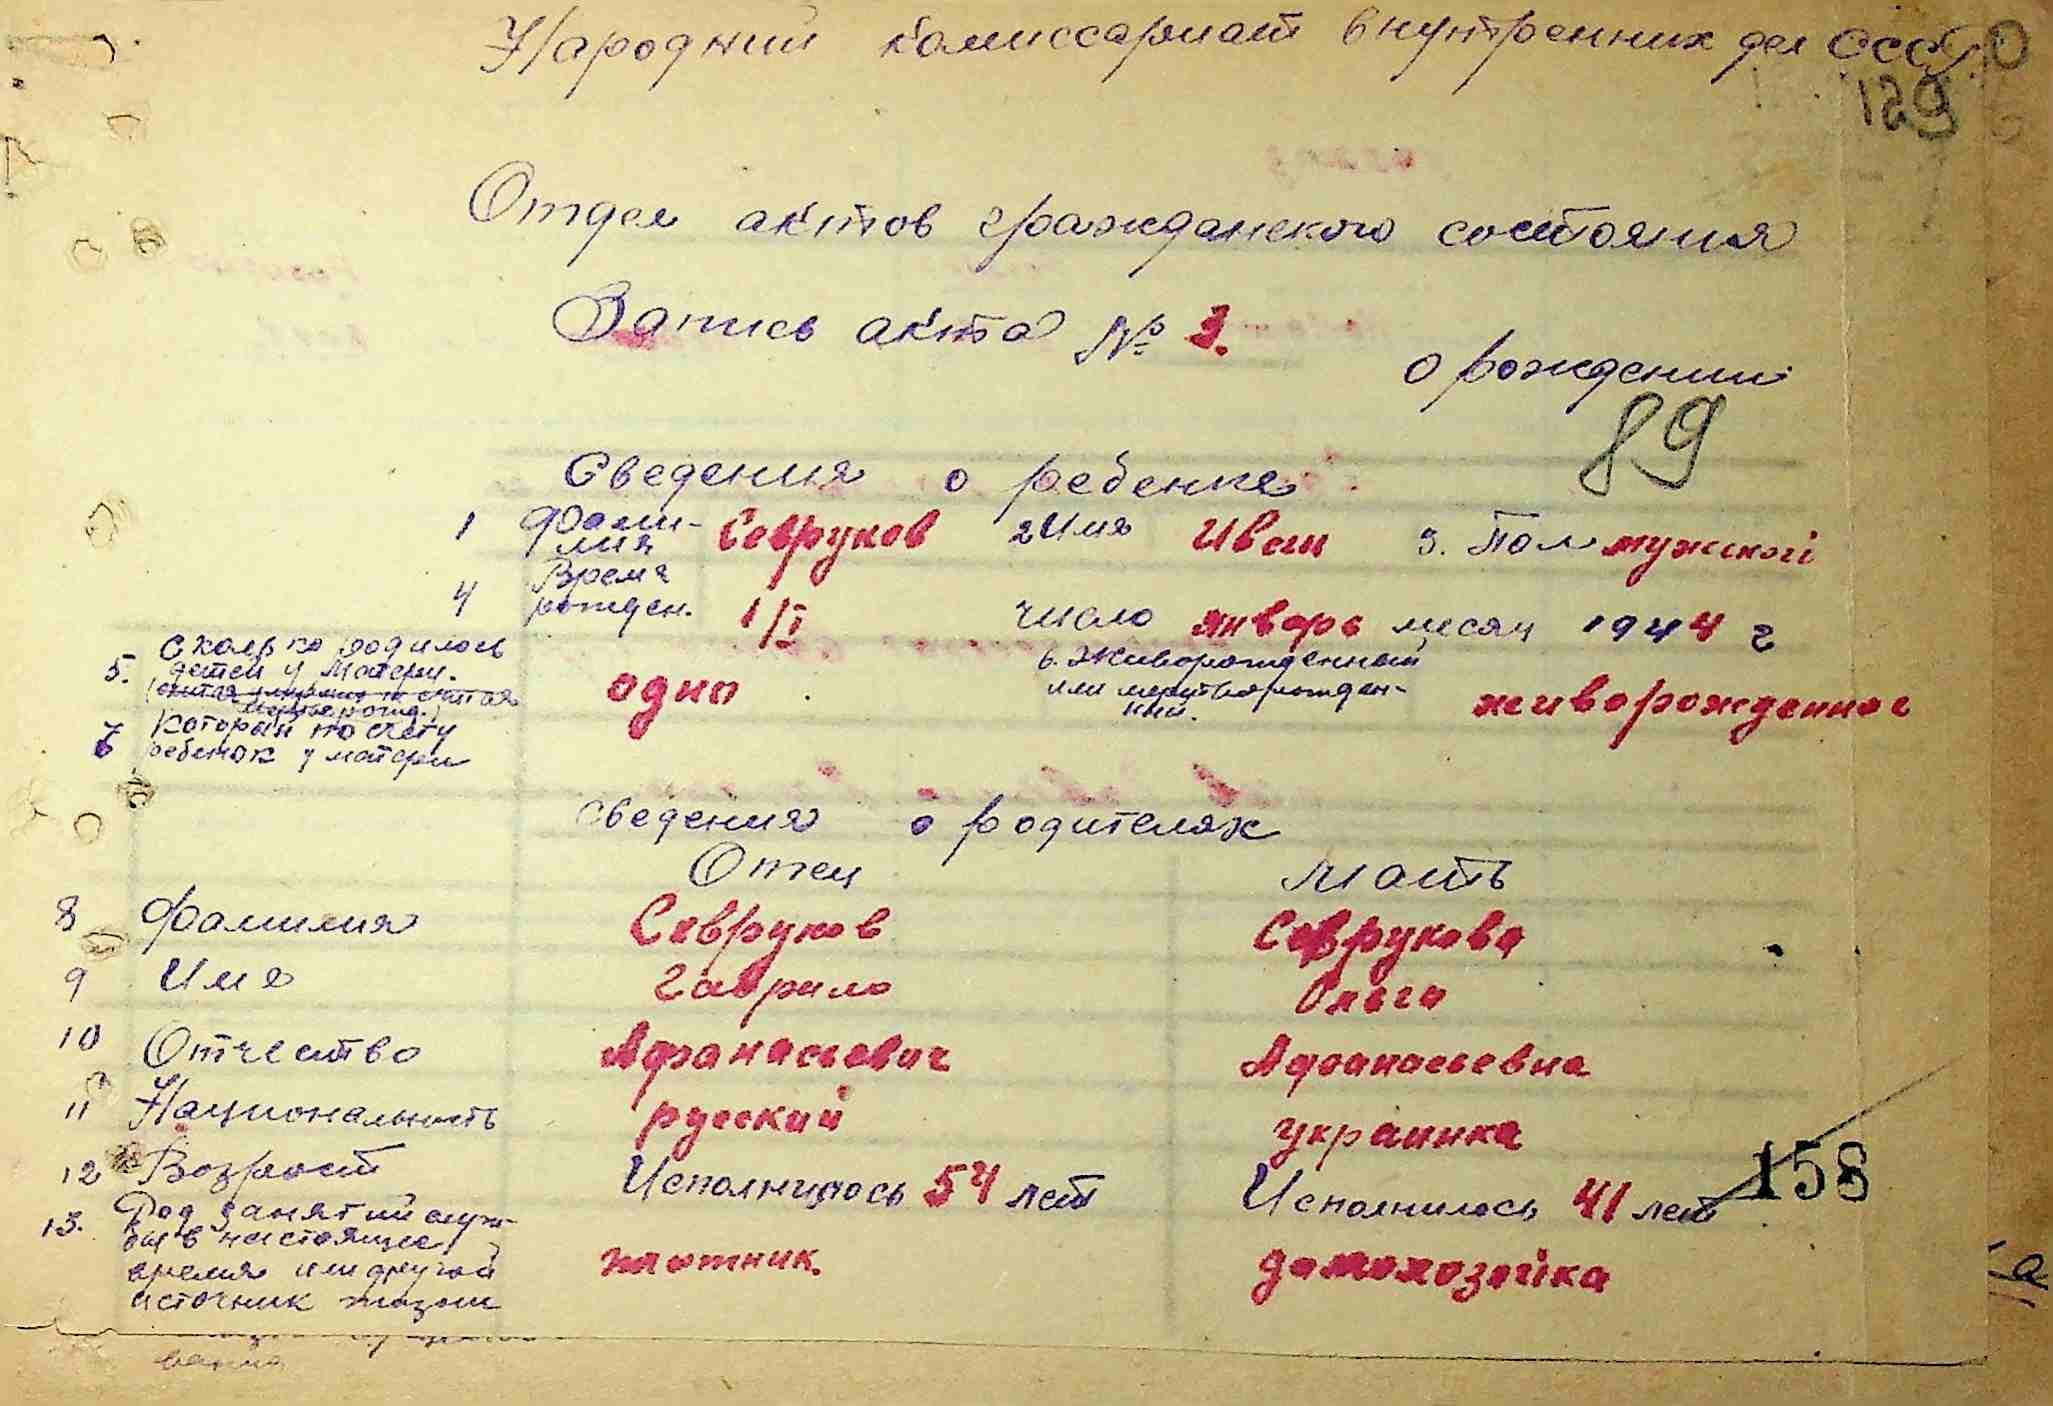 Народний комиссариат внутренних дел СССР
129
Отдел актов гражданского состояния
Запись акта №
о рождении
89
Сведения о ребенке
1 Фами- Севруков 2 Имя Иван 3. Пол мужской
лия
4 Время
рожден. 1/I число январь месяц 1944 г
5. Сколько родилось
детей у матери.
одно
6. Живорожденный
или мертворожден-
ний.
живорожденное
7 Который по счету
ребенок у матери
сведения о родителях
Отец Мать
8 Фамилия Севруков Севрукова
9 Имя Гаврило Ольга
10 Отчество Афанасьевич Афанасьевна
11 Национальность русский украинка
12 Возраст Исполнилось 54 лет Исполнилось 41 лет
158
13. Род занятий служ-
бы в настоящее
время или другой
источник
плотник. домохозяйка